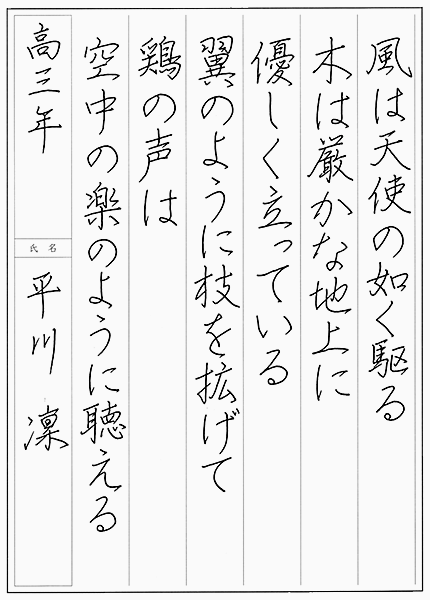 風は天使の如く駆る
木は厳かな地上に
優しく立っている
翼のように枝を拡げて
鶏の声は
空中の楽のように聴える
高三年
氏名
平川 凜